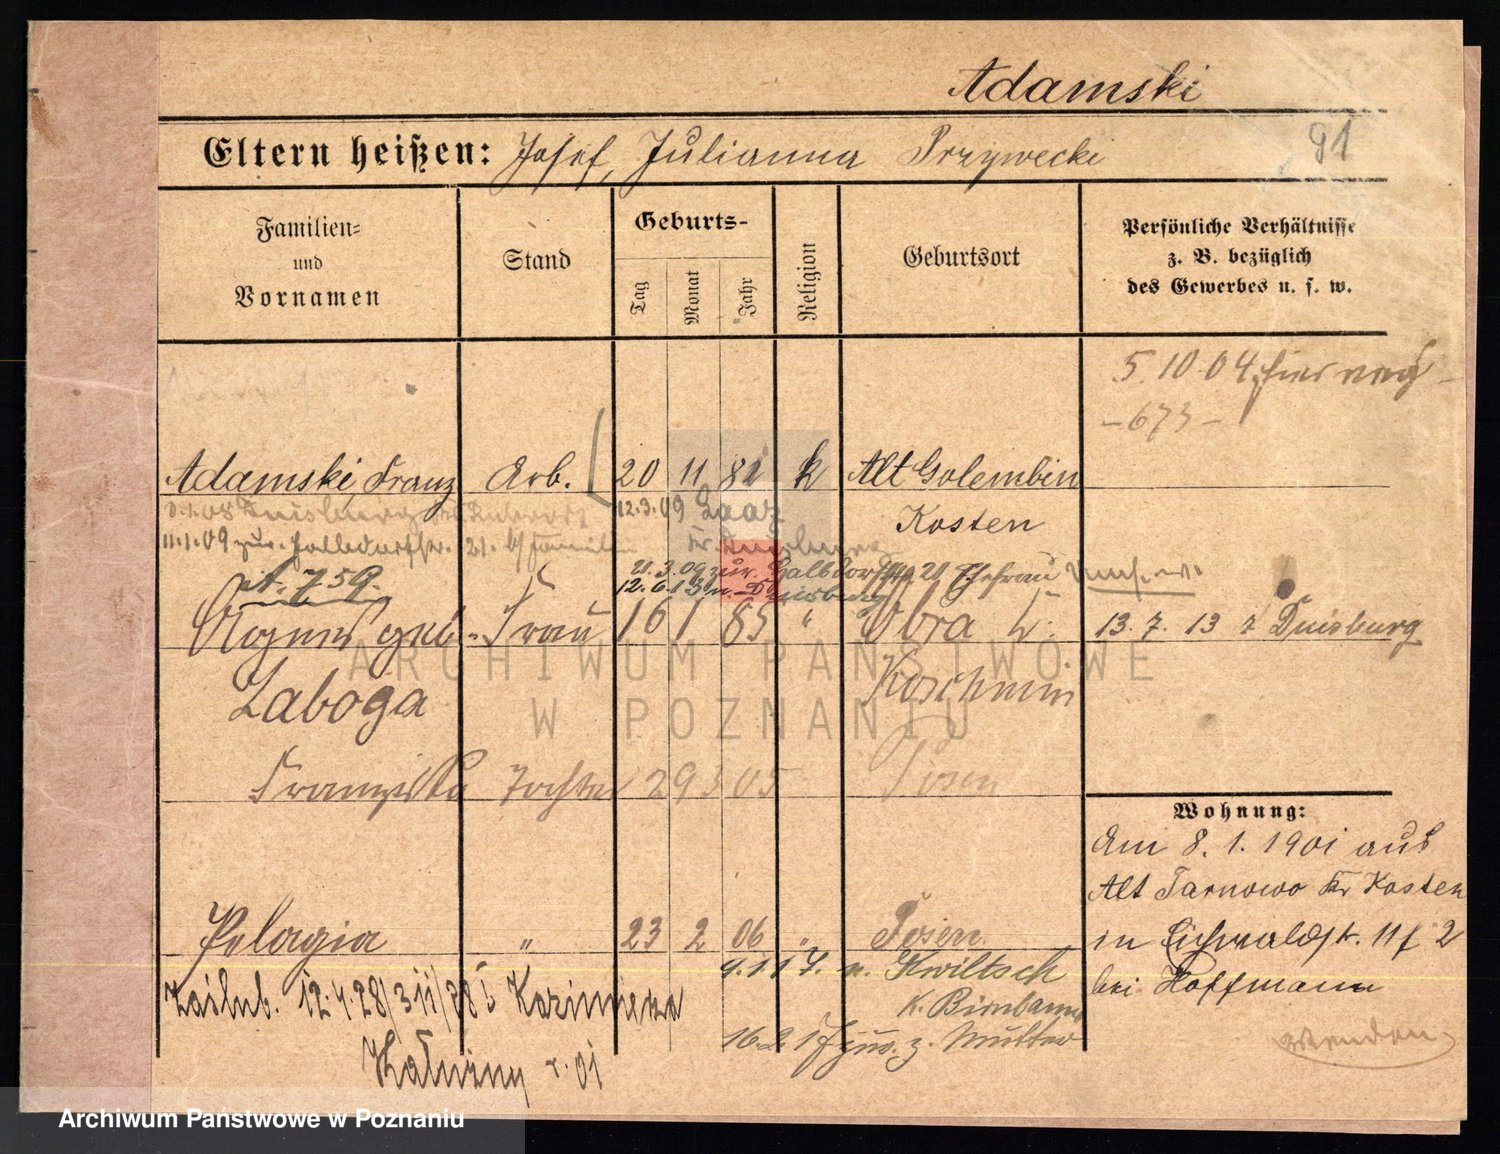 Adamski
Eltern heißen: Josef, Julianna Przywecki
91
Familien-
und
Vornamen
Stand
Geburts-
Tag
Monat
Jahr
Religion
Geburtsort
Persönliche Verhältnisse
z. B. bezüglich
des Gewerbes u. s. w.
5.10.04
-673-
Adamski, Franz Arb. 20 11 82 k Alt Golembin
Kosten
12.3.09
11.1.09 zur.
21.3.09 zur. Ehefrau
12.6.13 n. Duisburg
A. 759.
Agnes geb. Frau 16 1 85 " Obra K.
13.7.13 z Duisburg
Zaboga
Koschmin
Franziska Tochter 29 3 05 Posen
Wohnung:
Am 8.1.1901 aus
Alt Tarnowo Kr Kosten
in Eichwaldstr. 11 f 2
bei Hoffmann
Pelagia " 23 2 06 " Posen
9.1.17. n. Kwiltsch
K. Birnbaum
16.2.17 zur. z. Mutter
Zaślub. 12.4.28/311/28 z Kazimierza
Kałużny r. 01
ARCHIWUM PAŃSTWOWE
W POZNANIU
Archiwum Państwowe w Poznaniu